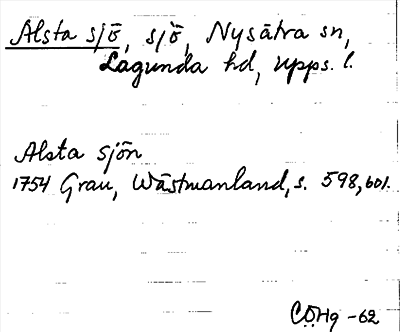 Alsta sjö, sjö, Nysätra sn,
Lagunda hd, Upps. l.
Alsta sjön
1754 Grau, Wästmanland, s. 598, 601.
CÖHg -62